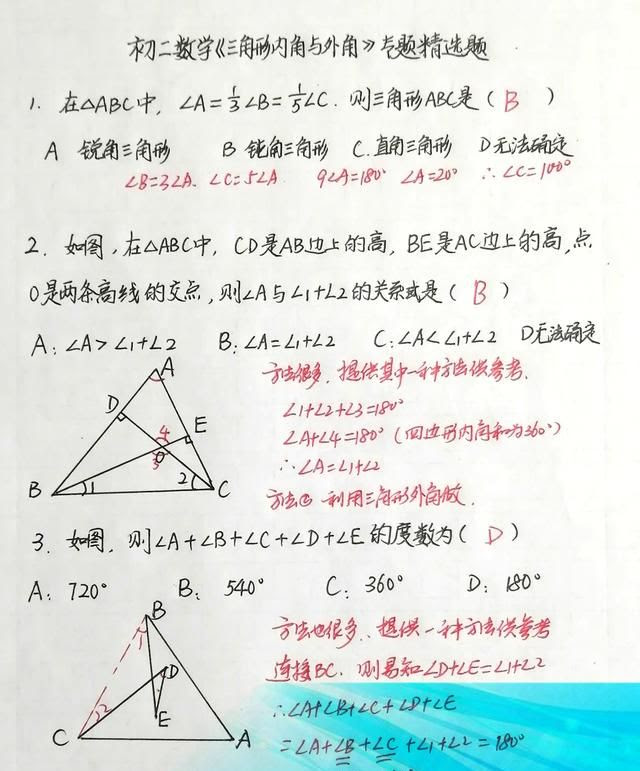 初二数学《三角形内角与外角》专题精选题
1. 在△ABC中, ∠A=1/3∠B=1/5∠C. 则三角形ABC是( B )
A 锐角三角形 B 钝角三角形 C.直角三角形 D无法确定
∠B=3∠A. ∠C=5∠A. 9∠A=180° ∠A=20° ∴∠C=100°
2. 如图,在△ABC中, CD是AB边上的高, BE是AC边上的高,点
O是两条高线的交点,则∠A与∠1+∠2的关系式是( B )
A: ∠A>∠1+∠2 B:∠A=∠1+∠2 C:∠A<∠1+∠2 D无法确定
方法很多,提供其中一种方法供参考.
∠1+∠2+∠3=180°
∠A+∠4=180° (四边形内角和为360°)
∴∠A=∠1+∠2
方法② 利用三角形外角做.
A
D
4
E
O
3
B
1
2
C
3. 如图, 则∠A+∠B+∠C+∠D+∠E的度数为( D )
A: 720° B: 540° C: 360° D: 180°
方法也很多, 提供一种方法供参考
连接BC. 则易知∠D+∠E=∠1+∠2
∴∠A+∠B+∠C+∠D+∠E
=∠A+∠B+∠C+∠1+∠2=180°
B
1
D
2
E
C
A